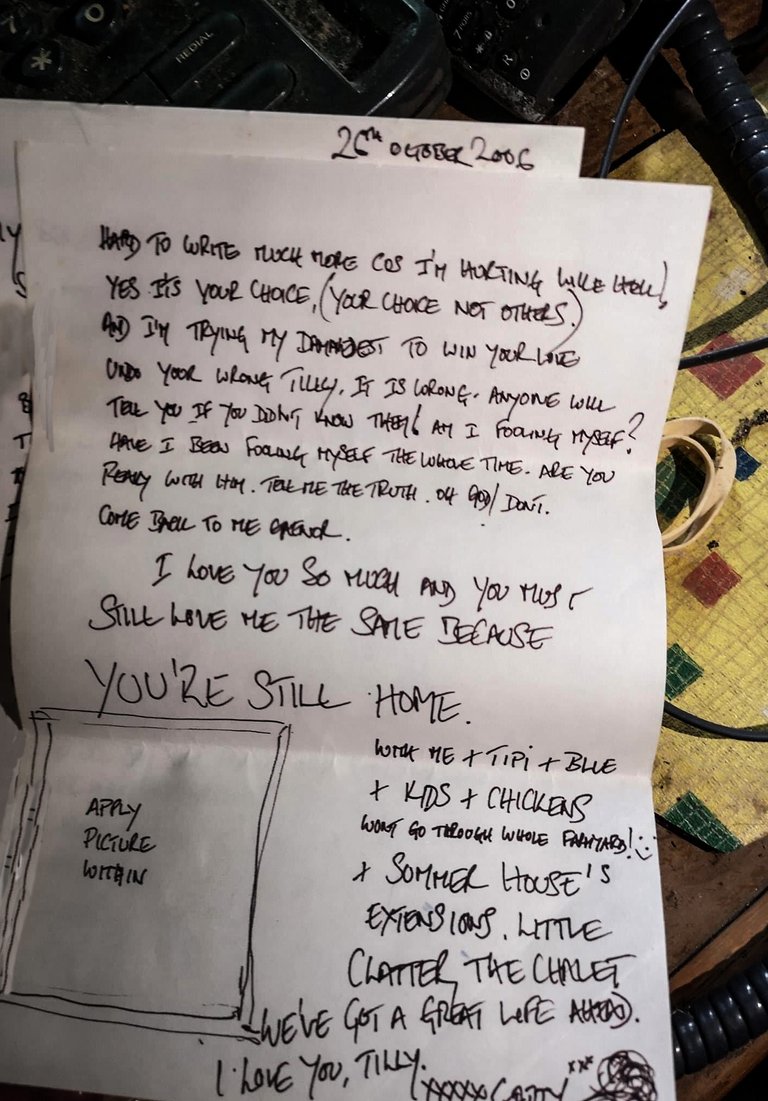 REDIAL
26TH OCTOBER 2006
HARD TO WRITE MUCH MORE COS I'M HURTING LIKE HELL!
YES IT'S YOUR CHOICE, (YOUR CHOICE NOT OTHERS.)
AND I'M TRYING MY DAMNDEST TO WIN YOUR LOVE
UNDO YOUR WRONG TILLY. IT IS WRONG. ANYONE WILL
TELL YOU IF YOU DIDN'T KNOW THEM! AM I FOOLING MYSELF?
HAVE I BEEN FOOLING MYSELF THE WHOLE TIME. ARE YOU
REALLY WITH HIM. TELL ME THE TRUTH. OH GOD! DON'T.
COME BACK TO ME
I LOVE YOU SO MUCH AND YOU MUST
STILL LOVE ME THE SAME BECAUSE
YOU'RE STILL HOME.
WITH ME + TIPI + BLUE
+ KIDS + CHICKENS
WONT GO THROUGH WHOLE FARMYARD!
+ SOMMER HOUSE'S
EXTENSIONS. LITTLE
CLATTER, THE CHALET
WE'VE GOT A GREAT LIFE AHEAD.
I LOVE YOU, TILLY.
xxxxx xxx
APPLY
PICTURE
WITHIN